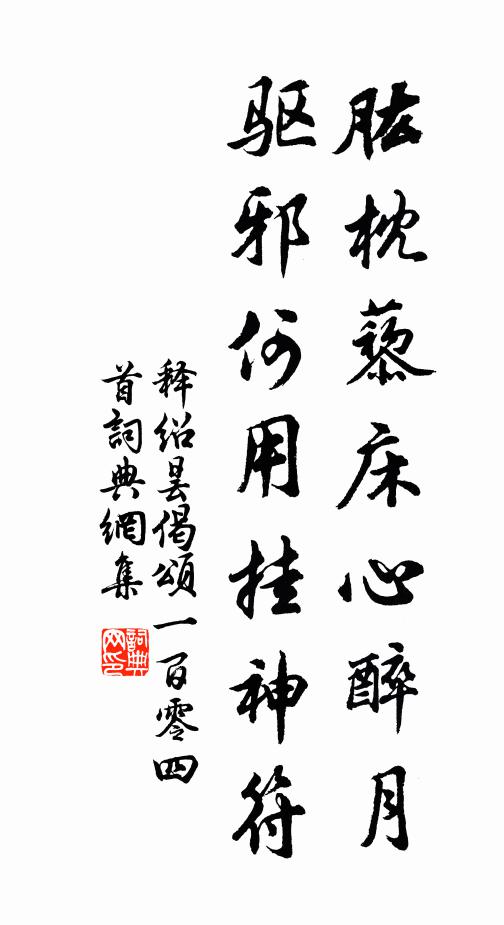 肱枕藜床心醉月
驱邪何用挂神符
释绍昙偈颂一百零四
首词典网集
詞典
网印